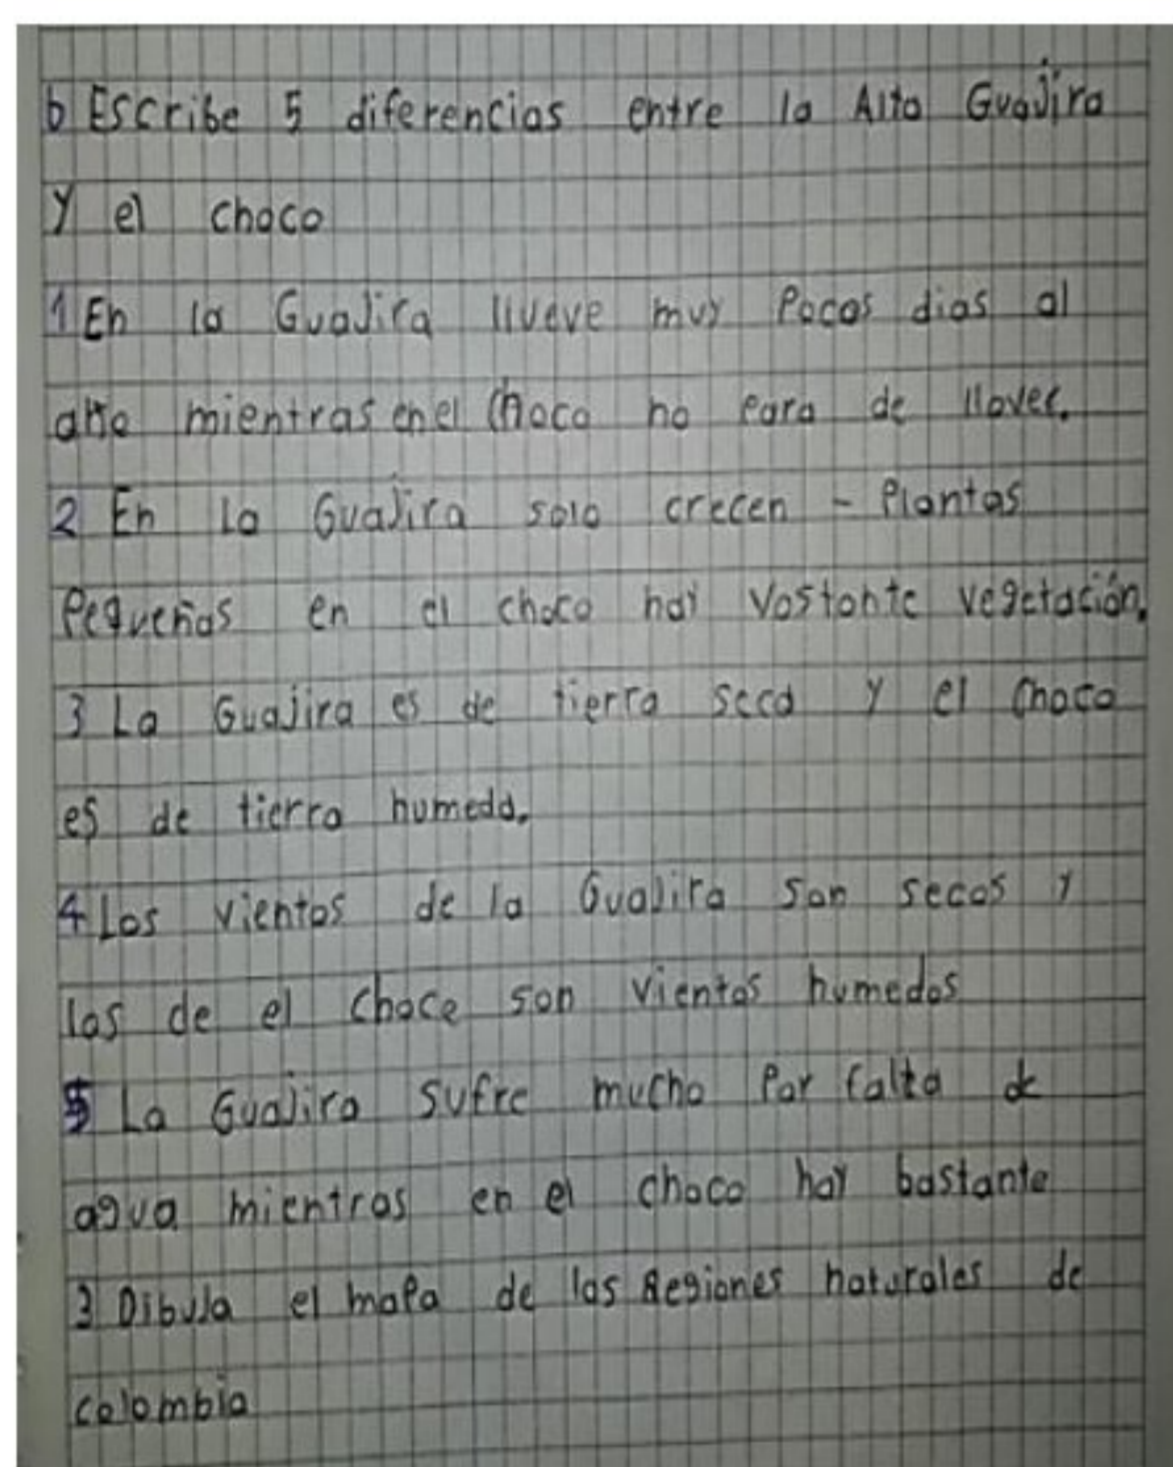 b Escribe 5 diferencias entre la Alta Guajira
y el choco
1 En la Guajira llueve muy Pocos dias al
año mientras en el Choco no para de llover.
2 En La Guajira solo crecen - Plantas
Pequeñas en el choco hay Vastante vegetación.
3 La Guajira es de tierra seca y el Choco
es de tierra humeda.
4 Los vientos de la Guajira son secos y
los de el choce son vientos humedos
5 La Guajira sufre mucho Por falta de
agua mientras en el choco hay bastante
3 Dibuja el mapa de las Regiones naturales de
colombia